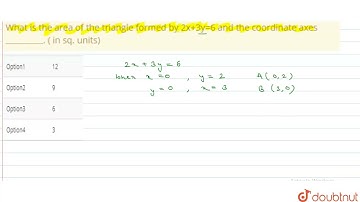 What is the area of the triangle formed by 2x+3y=6 and the coordinate axes
________. ( in sq. units)
Option1 12
Option2 9
Option3 6
Option4 3
2x + 3y = 6
when x = 0 , y = 2 A(0,2)
y = 0 , x = 3 B (3,0)
doubtnut